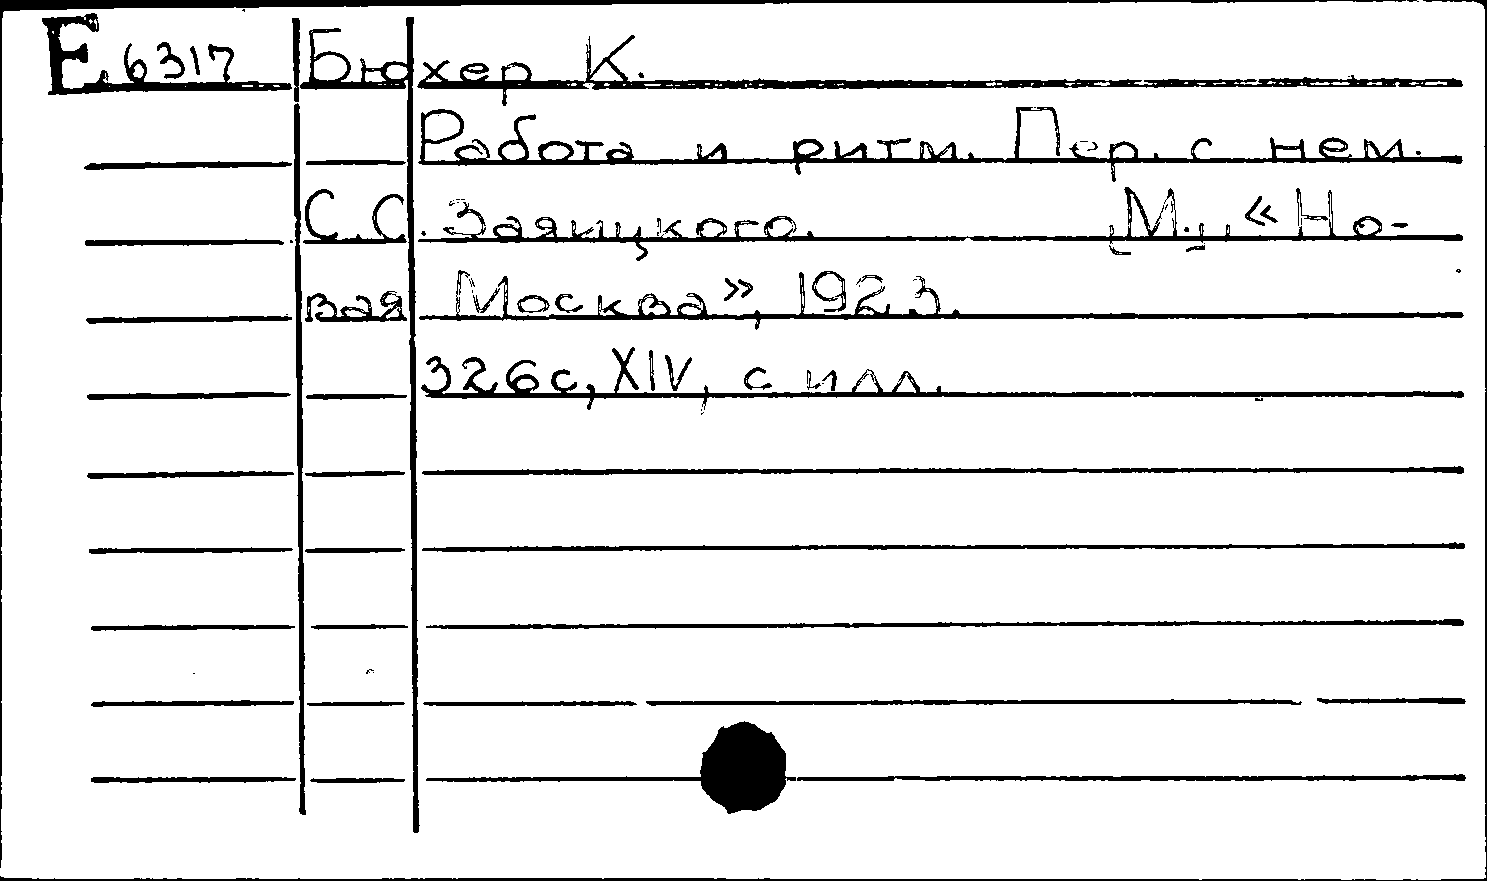 Е 6317 Бюхер К.
Работа и ритм. Пер. с нем.
С.С. Заяицкого. [М.], «Но-
вая Москва», 1923.
326с, XIV, с илл.